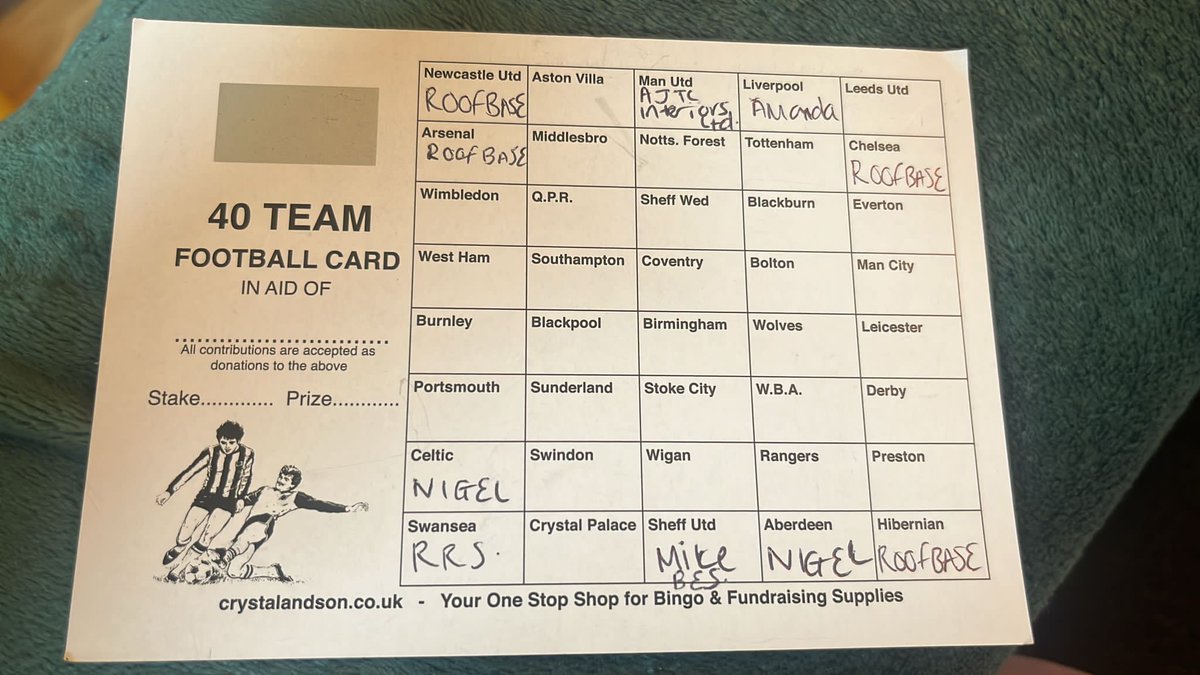 40 TEAM
FOOTBALL CARD
IN AID OF
All contributions are accepted as
donations to the above
Stake............. Prize............
Newcastle Utd
ROOFBASE
Aston Villa
Man Utd
AJTC
interiors
Ltd.
Liverpool
Amanda
Leeds Utd
Arsenal
ROOFBASE
Middlesbro
Notts. Forest
Tottenham
Chelsea
ROOFBASE
Wimbledon
Q.P.R.
Sheff Wed
Blackburn
Everton
West Ham
Southampton
Coventry
Bolton
Man City
Burnley
Blackpool
Birmingham
Wolves
Leicester
Portsmouth
Sunderland
Stoke City
W.B.A.
Derby
Celtic
NIGEL
Swindon
Wigan
Rangers
Preston
Swansea
RRS.
Crystal Palace
Sheff Utd
Mike
BES.
Aberdeen
NIGEL
Hibernian
ROOFBASE
crystalandson.co.uk - Your One Stop Shop for Bingo & Fundraising Supplies